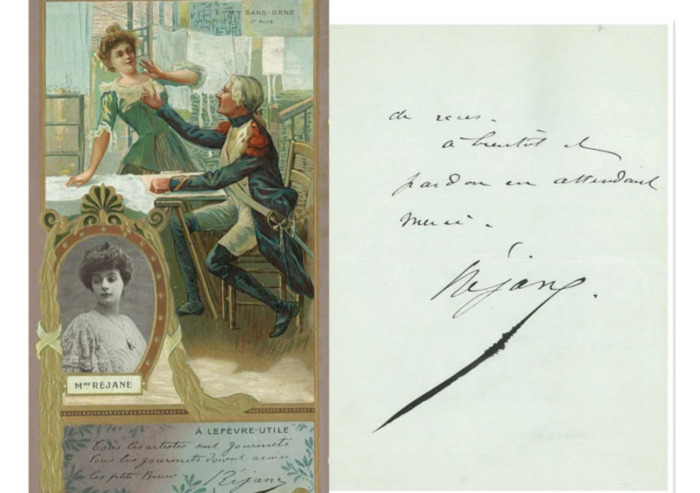 SANS-GÊNE
1er ACTE
Mme RÉJANE
À LEFÈVRE-UTILE
Tous les artistes sont gourmets
Tous les gourmets doivent aimer
les petit-Beurre Réjane
de vous.
à bientôt et
pardon en attendant
merci.
Réjane.